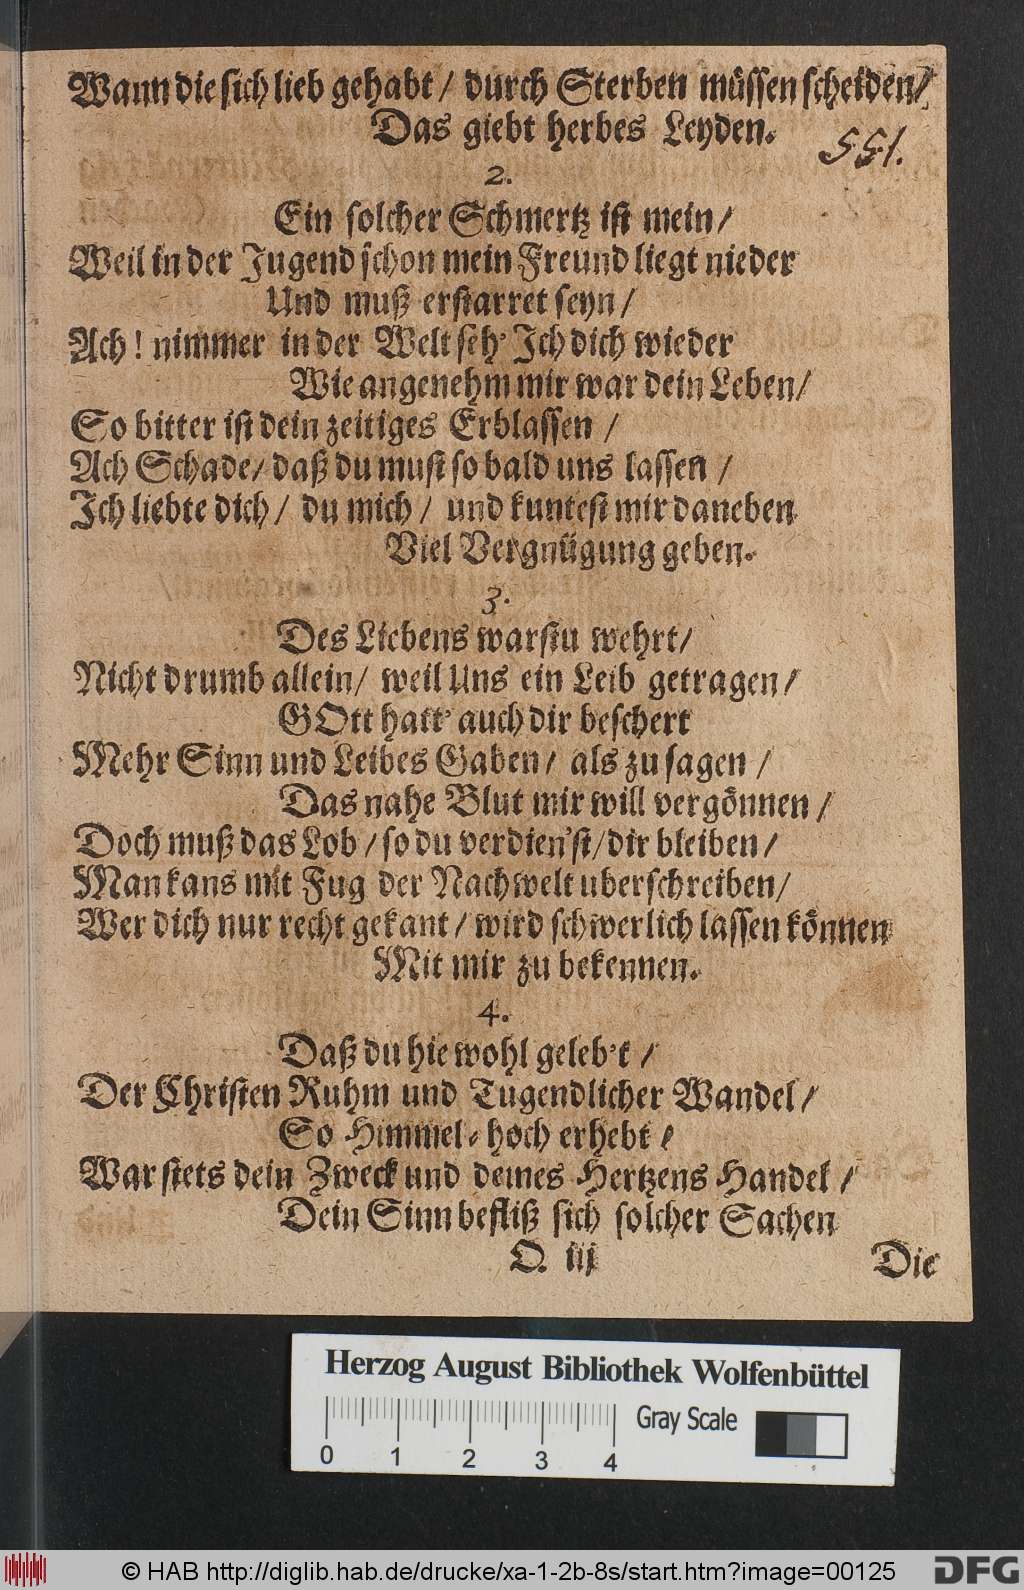 Wann die sich lieb gehabt / durch Sterben müssen scheiden /
Das giebt herbes Leyden.
551.
2.
Ein solcher Schmertz ist mein /
Weil in der Jugend schon mein Freund liegt nieder
Und muß erstarret seyn /
Ach! nimmer in der Welt seh' Ich dich wieder
Wie angenehm mir war dein Leben /
So bitter ist dein zeitiges Erblassen /
Ach Schade / daß du must so bald uns lassen /
Ich liebte dich / du mich / und kuntest mir daneben
Viel Vergnügung geben.
3.
Des Liebens warstu wehrt /
Nicht drumb allein / weil Uns ein Leib getragen /
GOtt hatt' auch dir beschert
Mehr Sinn und Leibes Gaben / als zu sagen /
Das nahe Blut mir will vergönnen /
Doch muß das Lob / so du verdien'st / dir bleiben /
Man kans mit Fug der Nachwelt uberschreiben /
Wer dich nur recht gekant / wird schwerlich lassen können
Mit mir zu bekennen.
4.
Daß du hie wohl geleb't /
Der Christen Ruhm und Tugendlicher Wandel /
So Himmel-hoch erhebt /
War stets dein Zweck und deines Hertzens Handel /
Dein Sinn befliß sich solcher Sachen
O. iij
Die
Herzog August Bibliothek Wolfenbüttel
0 1 2 3 4
Gray Scale
© HAB http://diglib.hab.de/drucke/xa-1-2b-8s/start.htm?image=00125
DFG